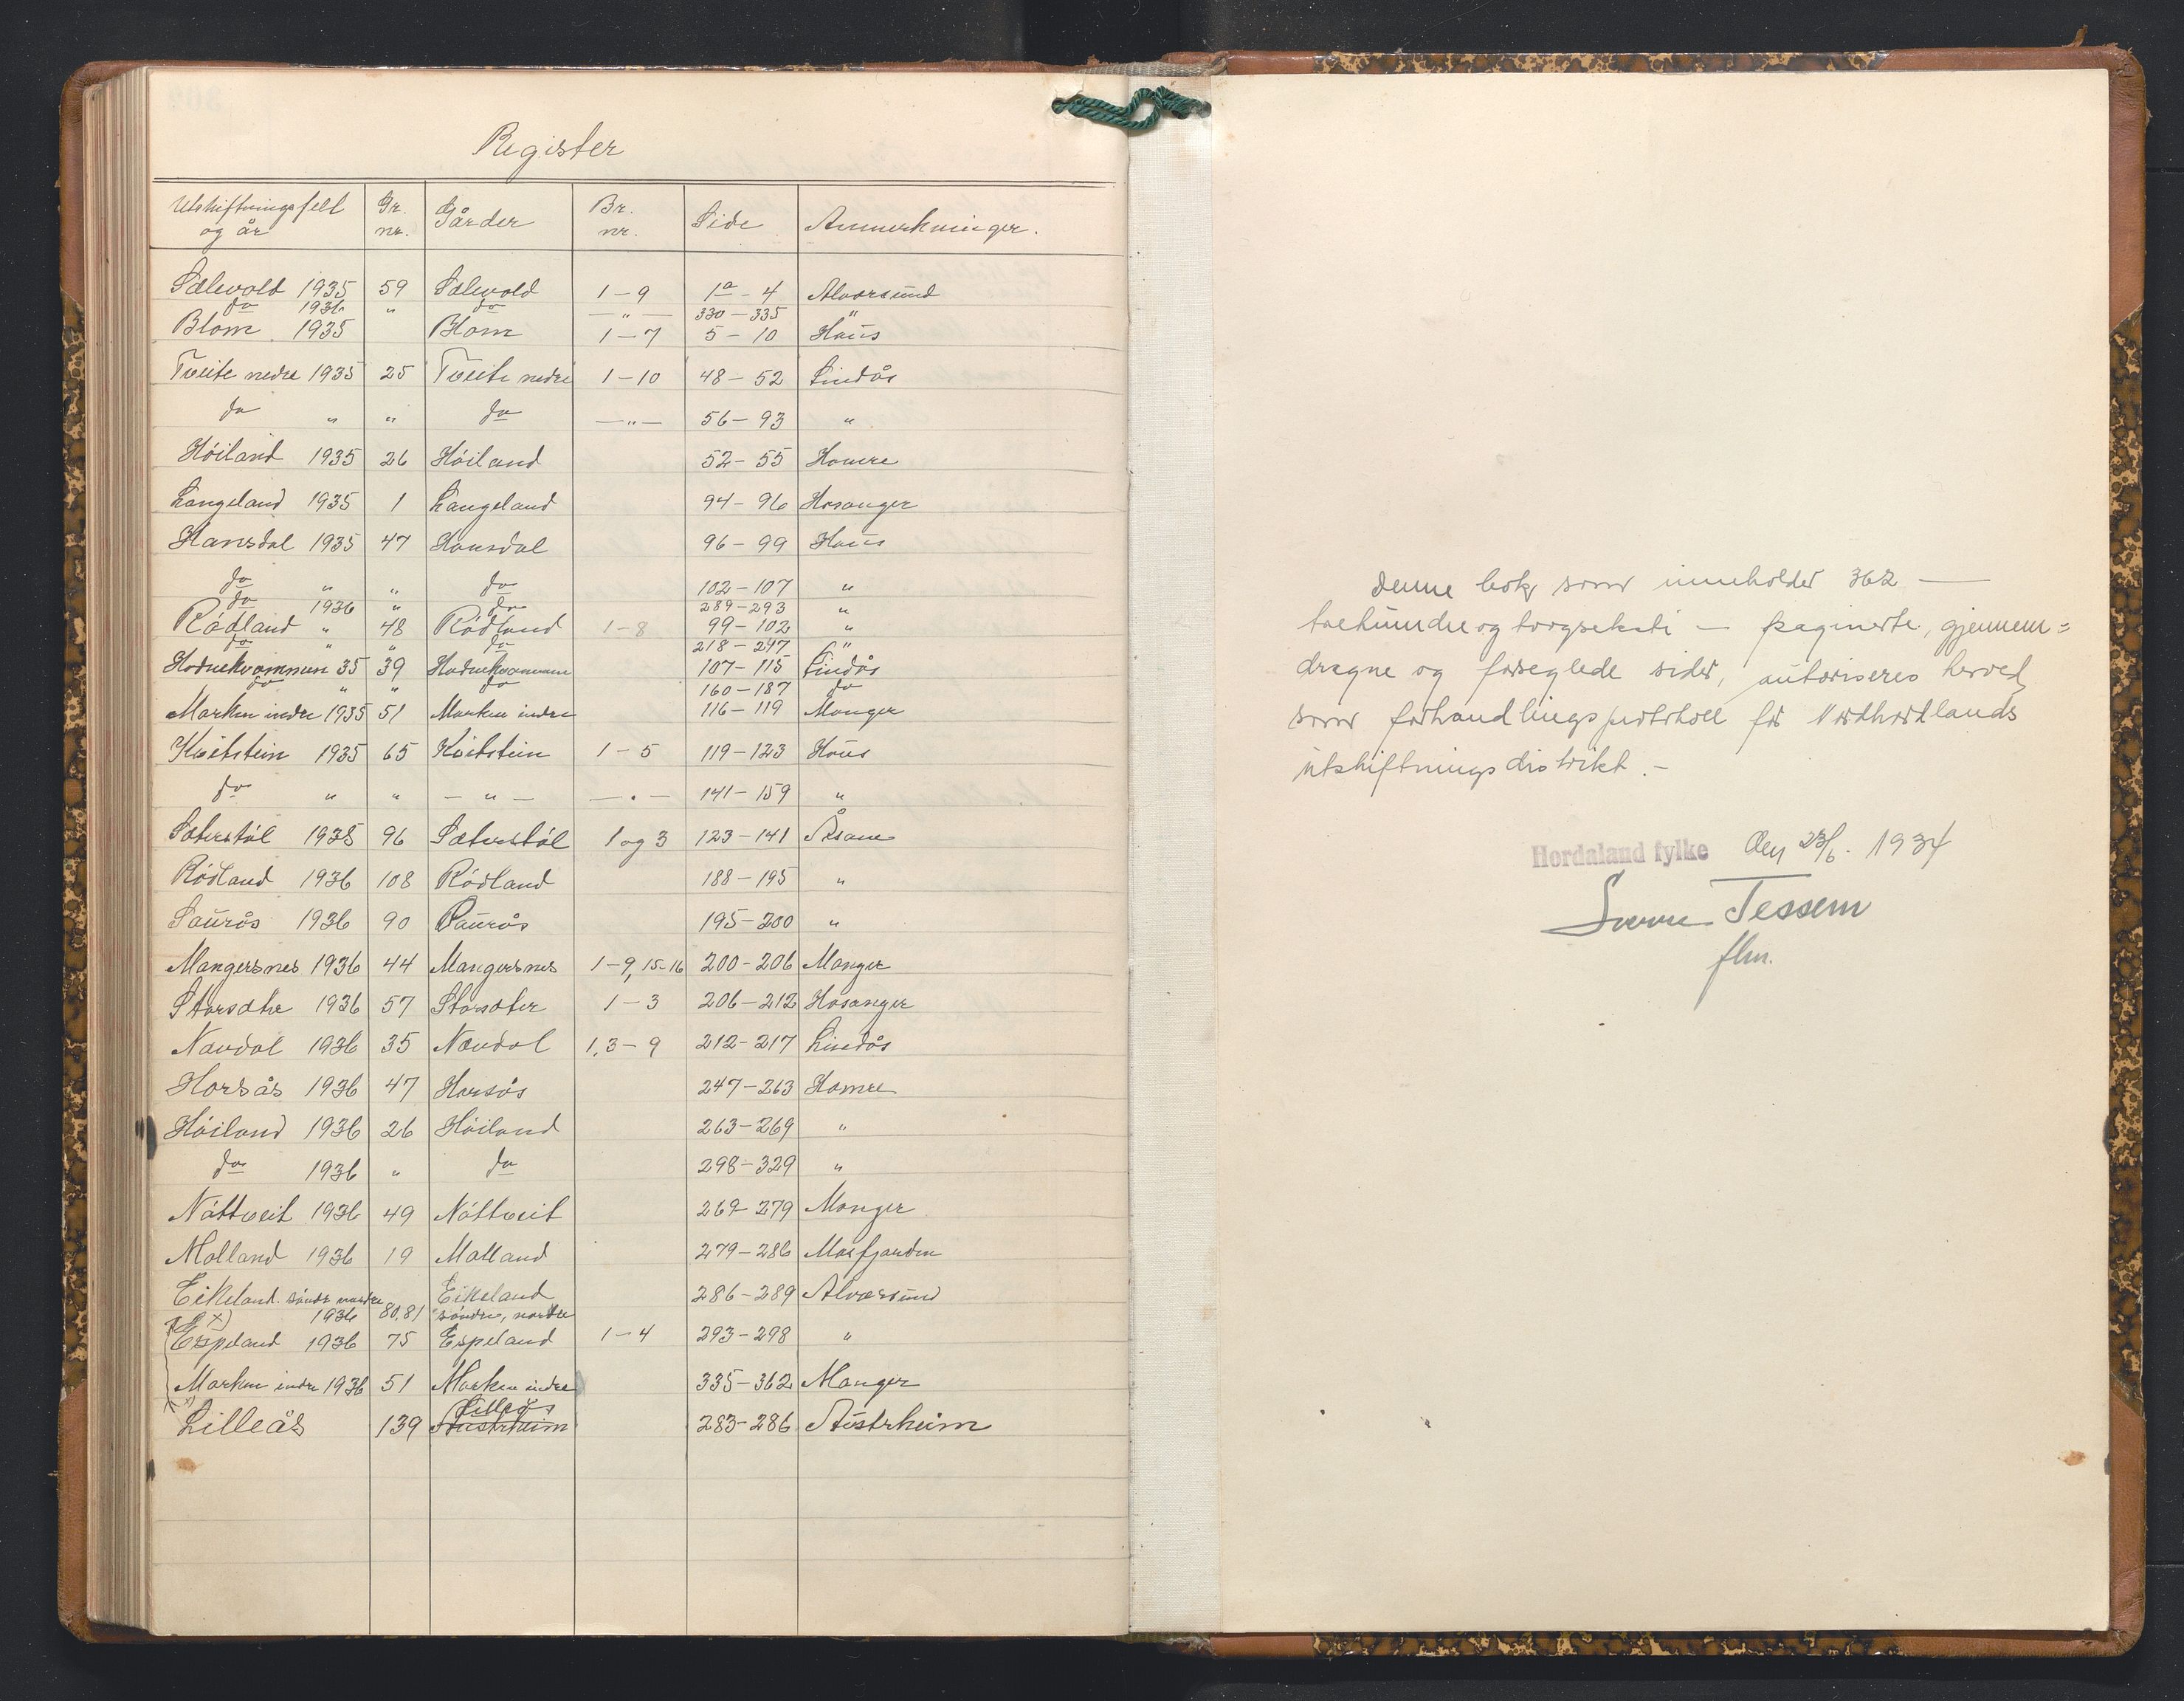 Register
Utskiftningsfelt og år | Gr. nr. | Gårder | Br. nr. | Side | Anmerkninger.
Sælevold 1935 | 59 | Sælevold | 1-9 | 1a - 4 | Alversund
do 1936 | " | do | - " - | 330-335 | "
Blom 1935 | | Blom | 1-7 | 5 - 10 | Haus
Tveite nedre 1935 | 25 | Tveite nedre | 1-10 | 48 - 52 | Lindås
do " | " | do | - " - | 56 - 93 | "
Höiland 1935 | 26 | Höiland | | 52 - 55 | Hamre
Langeland 1935 | 1 | Langeland | | 94 - 96 | Hosanger
Hansdal 1935 | 47 | Hansdal | | 96 - 99 | Haus
do " | " | do | | 102-107 | "
do 1936 | " | do | | 289-293 | "
Rödland " | 48 | Rödland | 1-8 | 99-102 | "
do " | " | do | | 218-247 | "
Hodnekvammen 35 | 39 | Hodnekvammen | | 107-115 | Lindås
do " | " | do | | 160-187 | do
Marken indre 1935 | 51 | Marken indre | | 116-119 | Manger
Kvitstein 1935 | 65 | Kvitstein | 1-5 | 119-123 | Haus
do " | " | - " - | - " - | 141-159 | "
Sæterstöl 1935 | 96 | Sæterstöl | 1 og 3 | 123-141 | Åsane
Rödland 1936 | 108 | Rödland | | 188-195 | "
Saurås 1936 | 90 | Saurås | | 195-200 | "
Mangersnes 1936 | 44 | Mangersnes | 1-9, 15-16 | 200-206 | Manger
Storsæter 1936 | 57 | Storsæter | 1-3 | 206-212 | Hosanger
Nævdal 1936 | 35 | Nævdal | 1, 3-9 | 212-217 | Lindås
Horsås 1936 | 47 | Horsås | | 247-263 | Hamre
Höiland 1936 | 26 | Höiland | | 263-269 | "
do 1936 | " | do | | 298-329 | "
Nöttveit 1936 | 49 | Nöttveit | | 269-279 | Manger
Molland 1936 | 19 | Molland | | 279-286 | Masfjorden
Eikeland söndre nordre 1936 | 80,81 | Eikeland söndre, nordre | | 286-289 | Alversund
x)
Espeland 1936 | 75 | Espeland | 1-4 | 293-298 | "
Marken indre 1936 | 51 | Marken indre | | 335-362 | Manger
x) Lilleås | 139 | Lilleås Austrheim | | 283-286 | Austrheim
Denne bok som inneholder 362 -
trehundre og togseksti - paginerte, gjennem=
dragne og forseglede sider, autoriseres herved
som forhandlingsprotokoll for Nordhordlands
utskiftningsdistrikt. -
Hordaland fylke den 23/6. 1934
Sverre Tessem
flm.